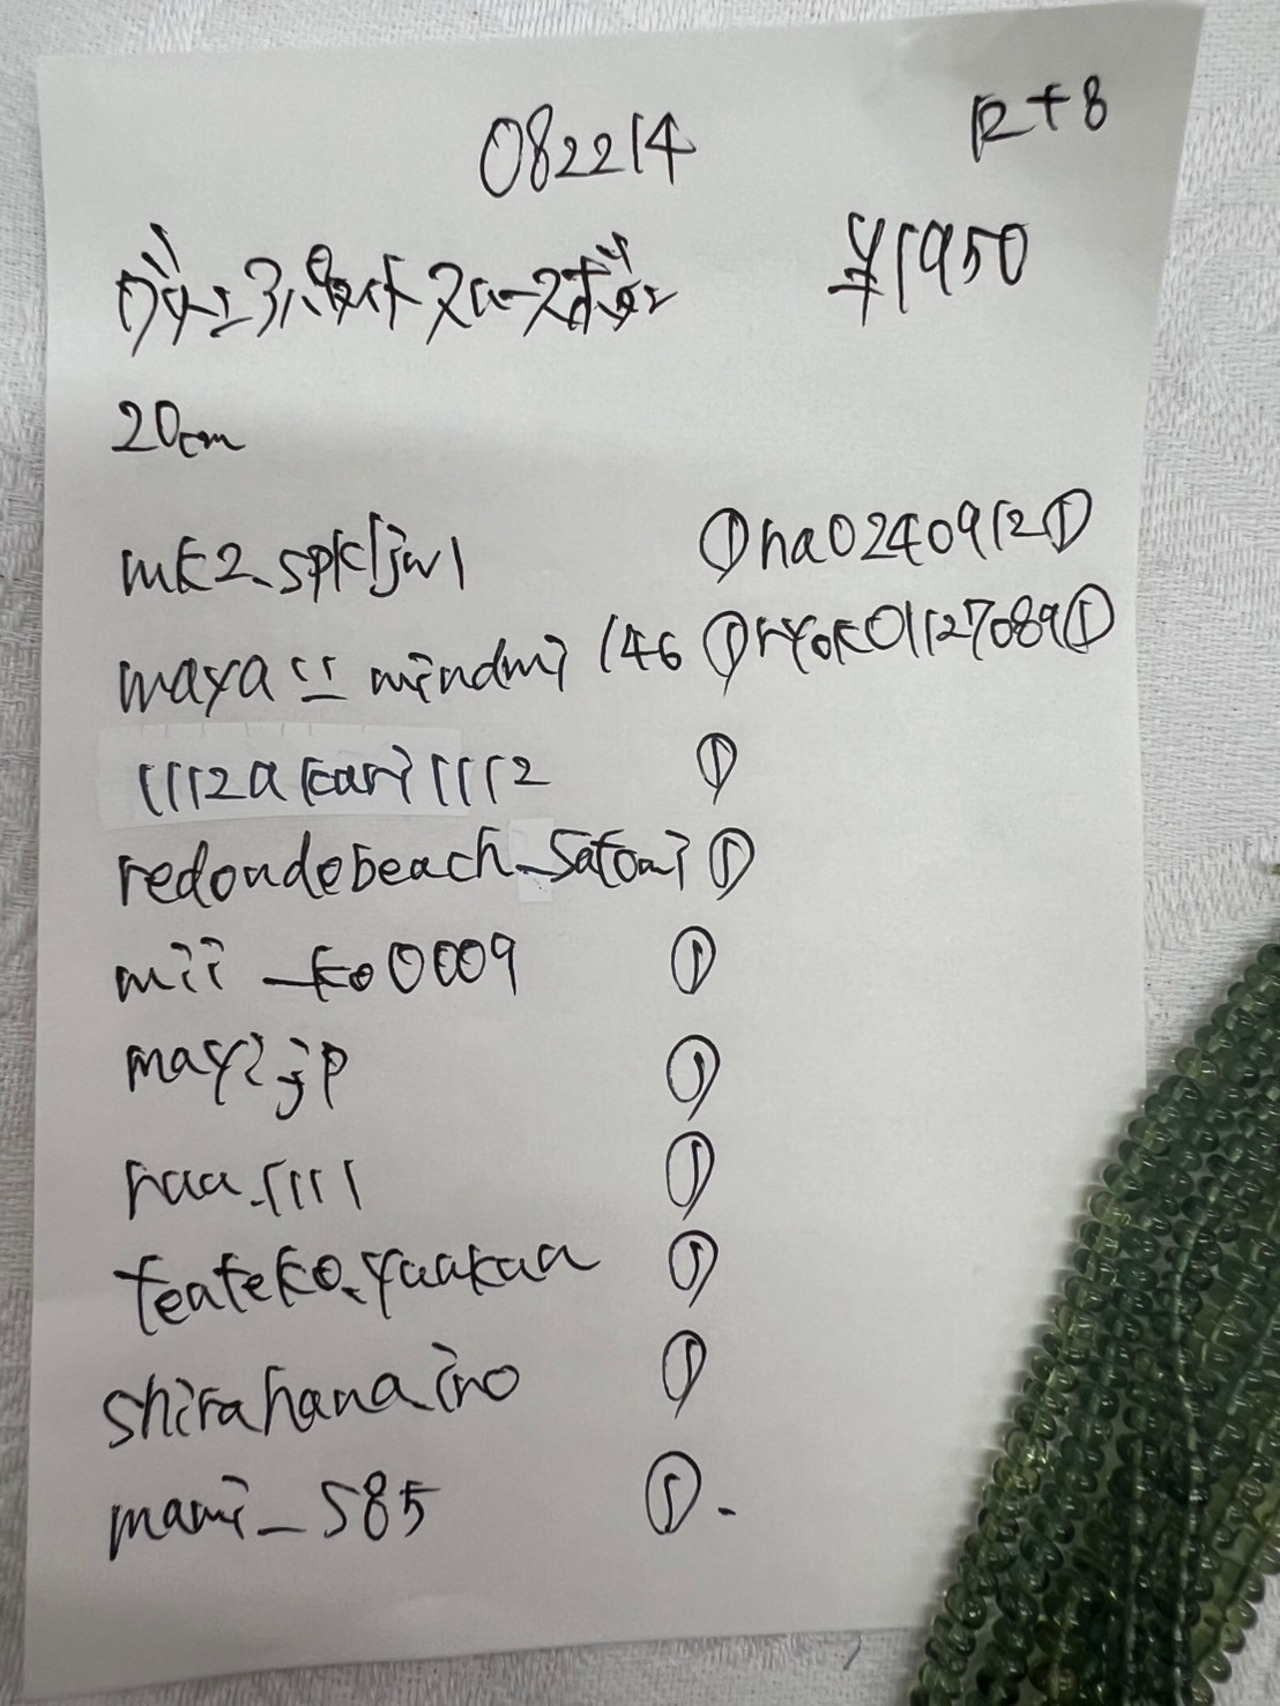 082214
R+8
¥1950
グリーンアパタイト スムースボタン
20cm
mk2_spkljw1 ①
ha0240912 ①
maya__mindmi146 ①
ryoko1127089 ①
1112akari1112 ①
redondobeach_satomi ①
mii_ko0009 ①
mayijp ①
naa_1111 ①
teateko_yaakaa ①
shirahanaino ①
mami_585 ①